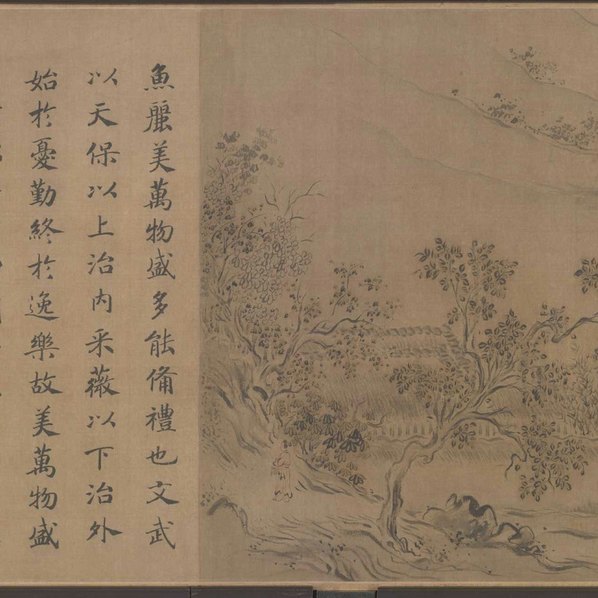 魚麗美萬物盛多能備禮也文武
以天保以上治內采薇以下治外
始於憂勤終於逸樂故美萬物盛